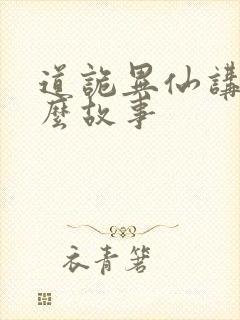 道詭異仙講
麼故事
衣青箬